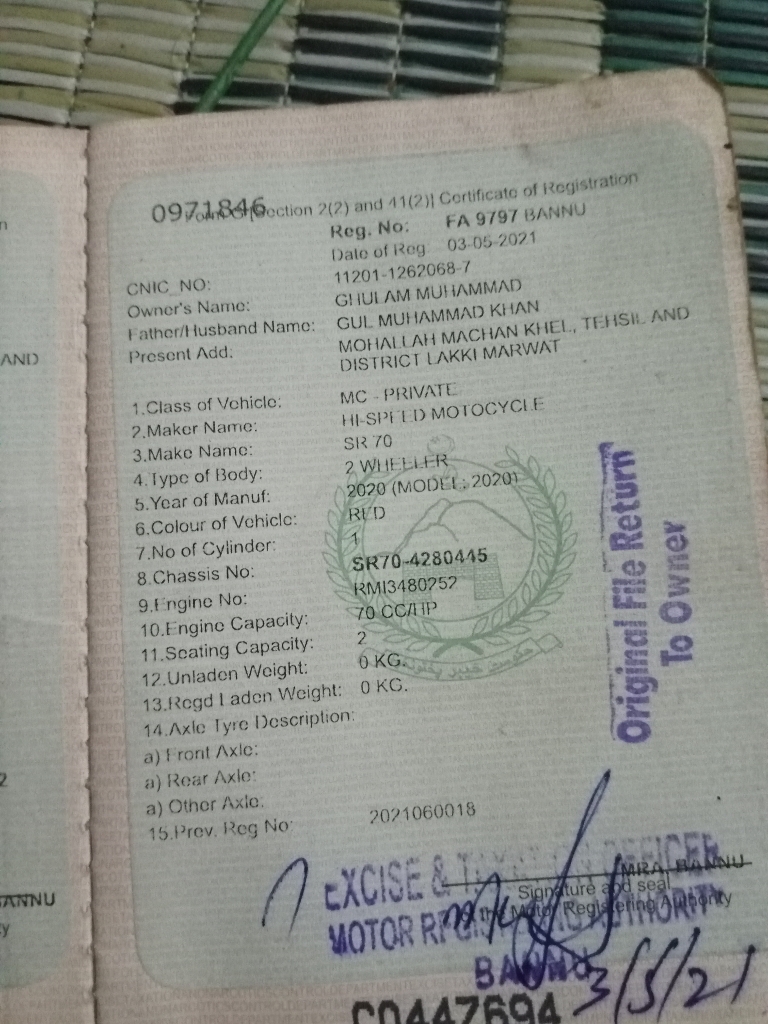 0971846
[Section 2(2) and 41(2)] Certificate of Registration
Reg. No: FA 9797 BANNU
Date of Reg 03-05-2021
CNIC_NO: 11201-1262068-7
Owner's Name: GHULAM MUHAMMAD
Father/Husband Name: GUL MUHAMMAD KHAN
Present Add: MOHALLAH MACHAN KHEL, TEHSIL AND
DISTRICT LAKKI MARWAT
1.Class of Vehicle: MC - PRIVATE
2.Maker Name: HI-SPEED MOTOCYCLE
3.Make Name: SR 70
4.Type of Body: 2 WHEELER
5.Year of Manuf: 2020 (MODEL: 2020)
6.Colour of Vehicle: RED
7.No of Cylinder: 1
8.Chassis No: SR70-4280445
9.Engine No: RMI3480252
10.Engine Capacity: 70 CC/HP
11.Seating Capacity: 2
12.Unladen Weight: 0 KG.
13.Regd Laden Weight: 0 KG.
14.Axle Tyre Description:
a) Front Axle:
a) Rear Axle:
a) Other Axle:
15.Prev. Reg No: 2021060018
Original File Return
To Owner
MRA, BANNU
Signature and seal
of the Motor Registering Authority
EXCISE & TAXATION OFFICER
MOTOR REGISTRING AUTHORITY
BANNU
3/5/21
C0447694
AND
2
BANNU